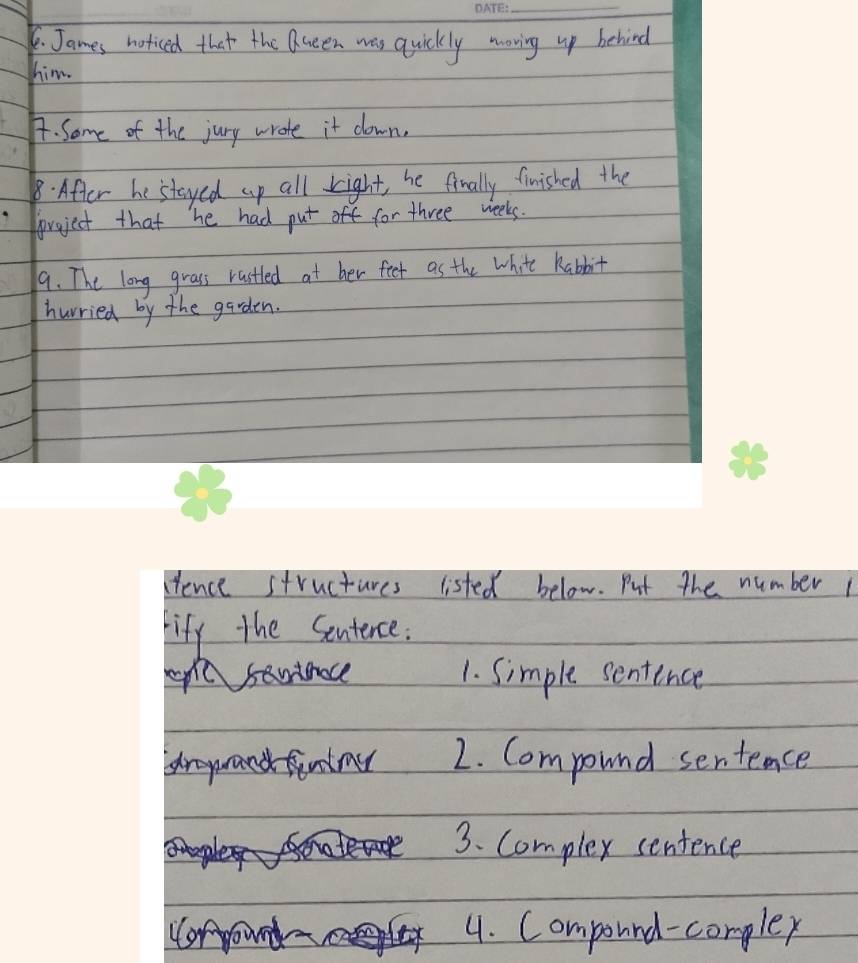 DATE:
6. James noticed that the Queen was quickly moving up behind
him.
7. Some of the jury wrote it down.
8. After he stayed up all night, he finally finished the
project that he had put off for three weeks.
9. The long grass rustled at her feet as the White Rabbit
hurried by the garden.
tence structures listed below. Put the number
tify the Sentence.
1. Simple sentence
2. Compound sentence
3. Complex sentence
4. Compound-complex